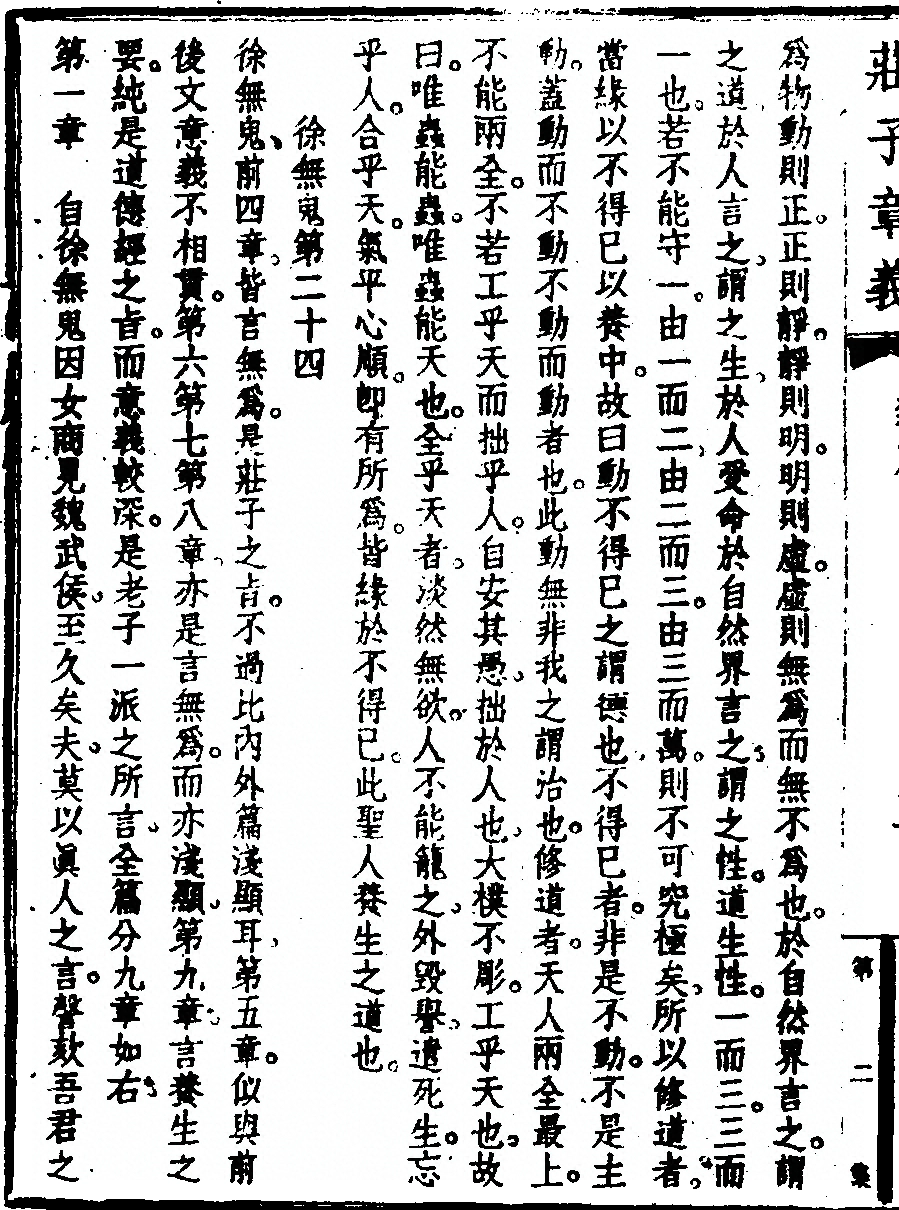 莊子章義
第二集
為物動則正。正則靜。靜則明。明則虛。虛則無為而無不為也。於自然界言之。謂
之道於人言之、謂之生、於人受命於自然界言之、謂之性。道生性。一而三。三而
一也。若不能守一。由一而二、由二而三。由三而萬。則不可究極矣、所以修道者。
當緣以不得已以養中。故曰動不得已之謂德也、不得已者。非是不動。不是主
動。蓋動而不動不動而動者也。此動無非我之謂治也。修道者。天人兩全最上。
不能兩全。不若工乎天而拙乎人。自安其愚、拙於人也、大樸不彫。工乎天也。故
曰。唯蟲能蟲。唯蟲能天也。全乎天者、淡然無欲。人不能籠之、外毀譽、遺死生。忘
乎人。合乎天。氣平心順。卽有所為。皆緣於不得已。此聖人養生之道也。
徐無鬼第二十四
徐無鬼、前四章、皆言無為。是莊子之旨。不過比內外篇淺顯耳、第五章。似與前
後文意義不相貫。第六第七第八章、亦是言無為。而亦淺顯、第九章、言養生之
要。純是道德經之旨。而意義較深。是老子一派之所言、全篇分九章如右。
第一章 自徐無鬼因女商見魏武侯、至久矣夫。莫以眞人之言。謦欬吾君之